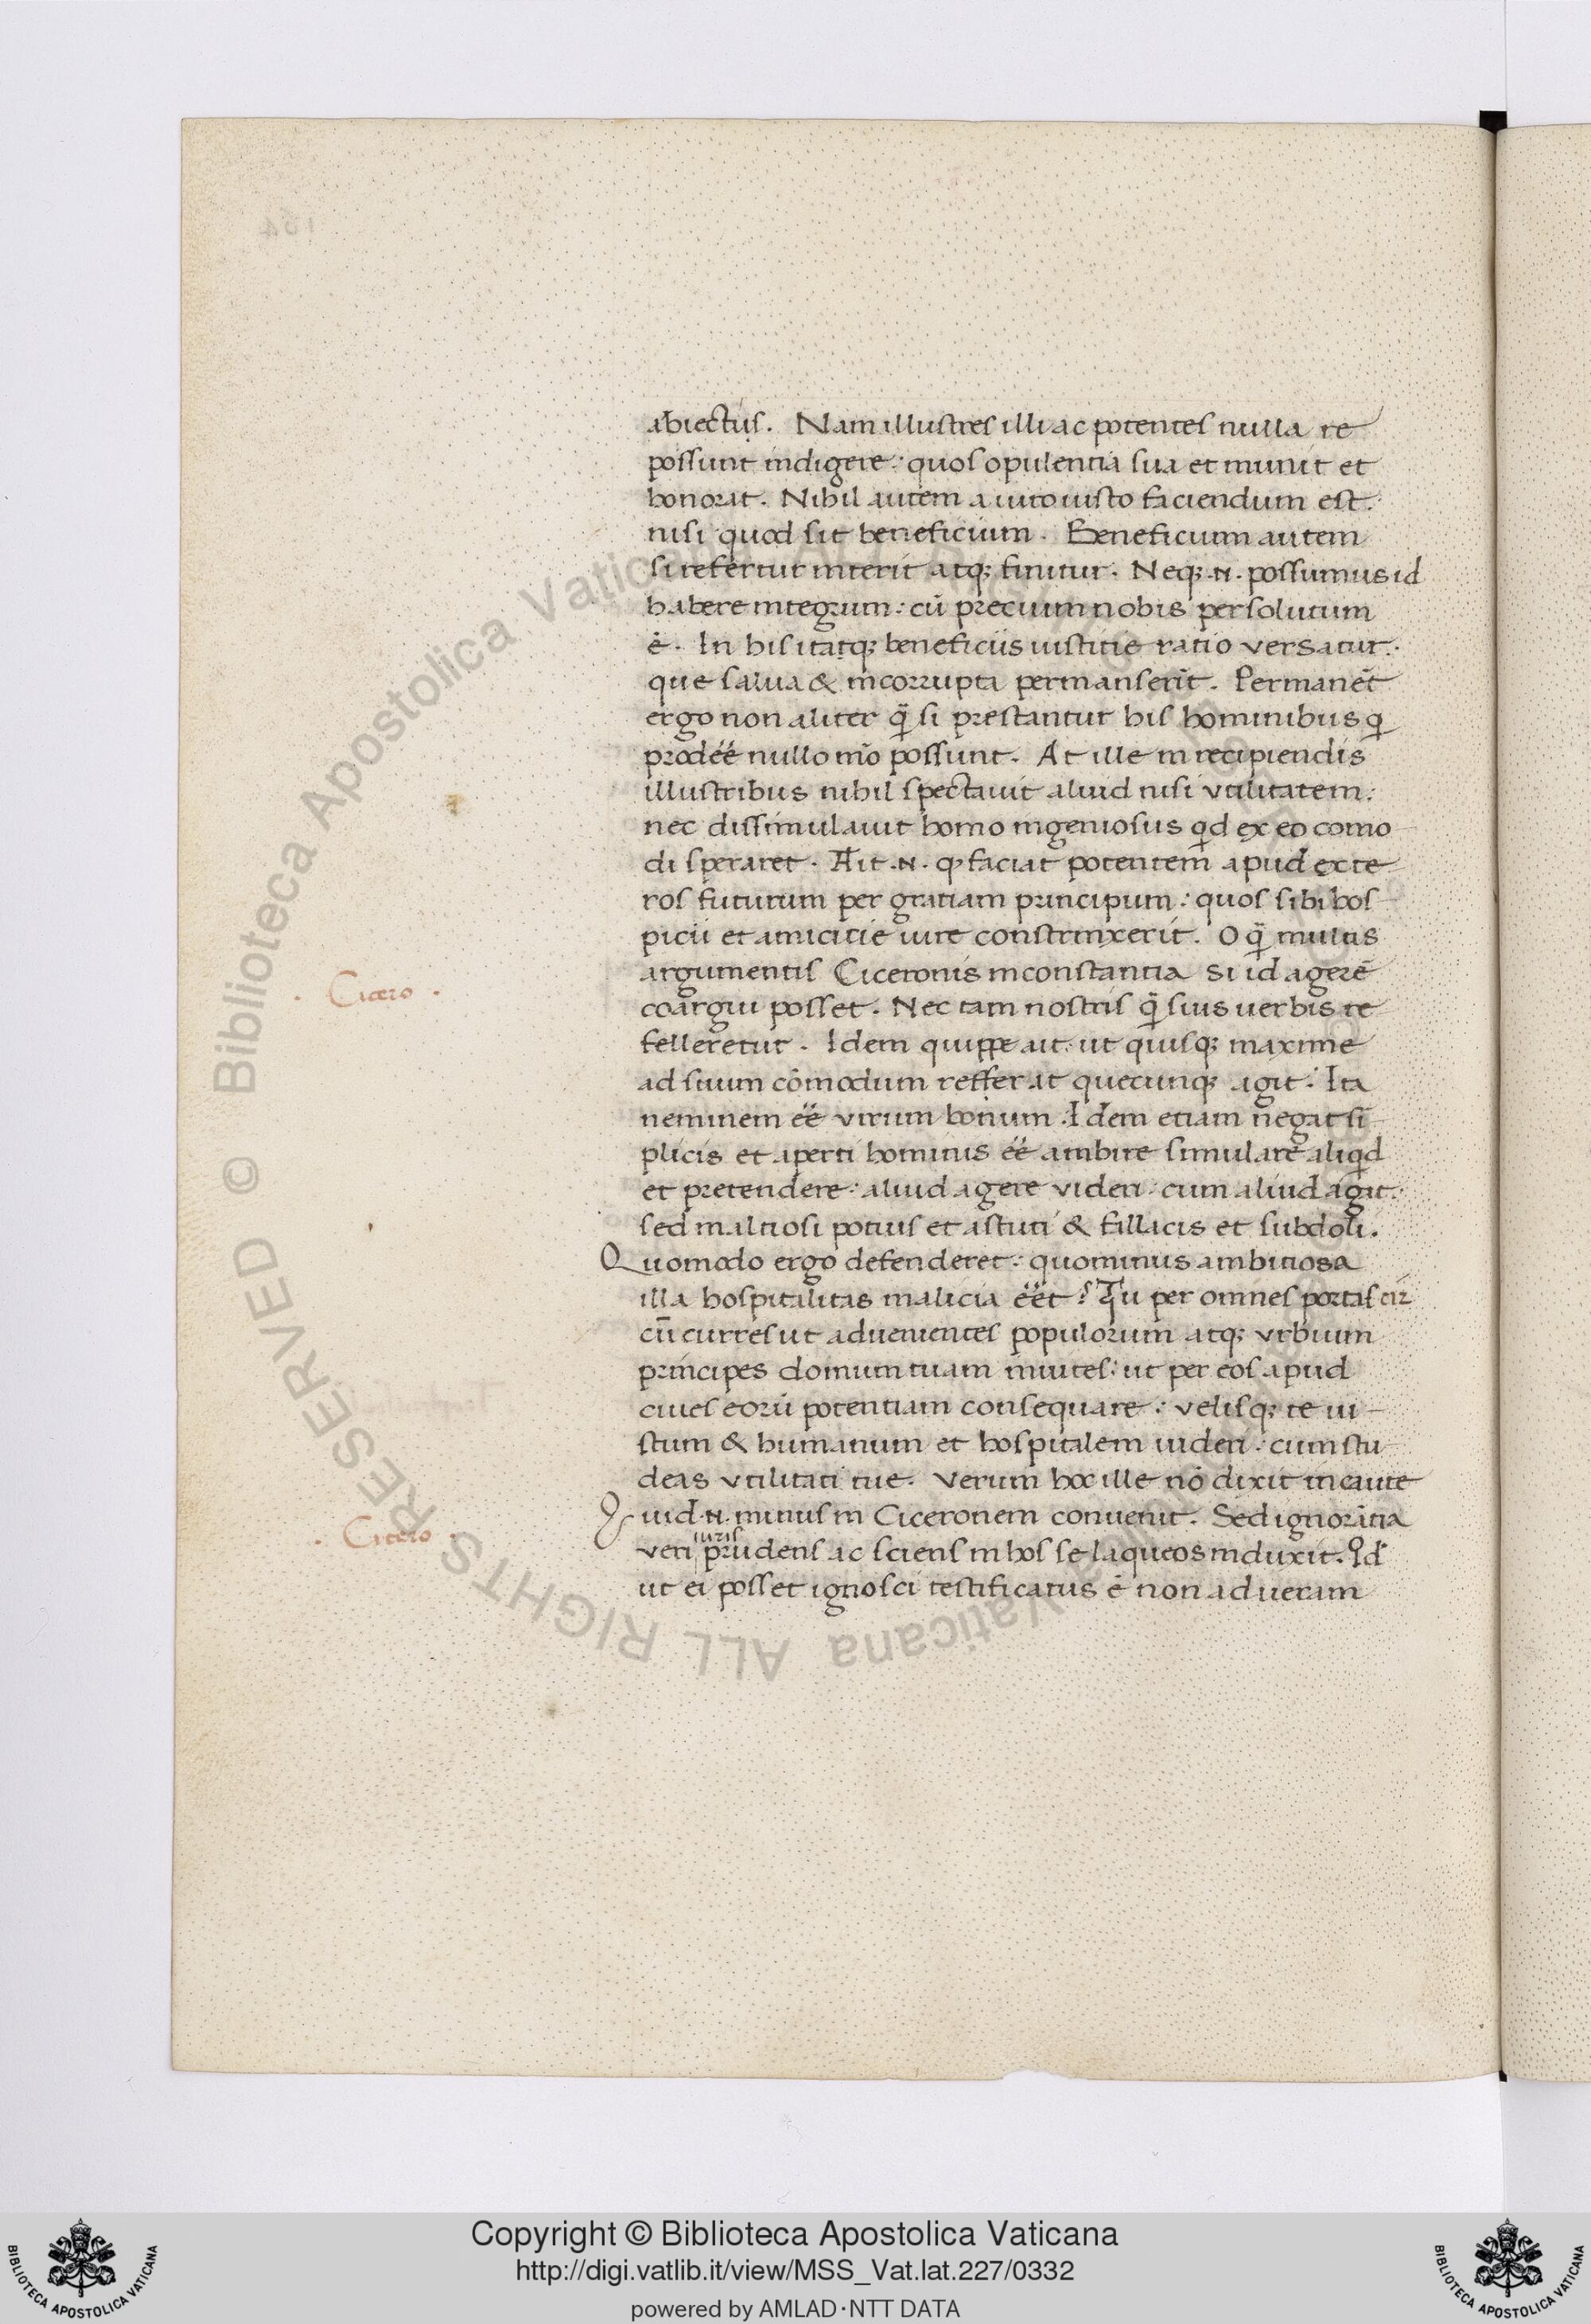 abiectus. Nam illustres illi ac potentes nulla re
possunt indigere: quos opulentia sua et munit et
honorat. Nihil autem a uiro iusto faciendum est:
nisi quod sit beneficium. Beneficium autem
si refertur interit atq; finitur. Neq; .n. possumus id
habere integrum: cū precium nobis persolutum
ē. In his itaq; beneficiis iustitie ratio versatur:
que salua & incorrupta permanserīt. Permanēt
ergo non aliter q̄ si prestantur his hominibus q
prodeē nullo mō possunt. At ille in recipiendis
illustribus nihil spectauit aliud nisi vtilitatem:
nec dissimulauit homo ingeniosus qd ex eo como
di speraret. Ait .n. q faciat potentem apud exte
ros futurum per gratiam principum: quos sibi hos
picii et amicitie iure constrinxerit. O q̄ multis
argumentis Ciceronis inconstantia si id agerē
coargui posset. Nec tam nostris q̄ suis uerbis re
felleretur. Idem quippe ait: ut quisq; maxime
ad suum cōmodum refferat quecunq; agit: Ita
neminem eē virum bonum. Idem etiam negat sī
plicis et aperti hominis eē ambire simulare aliqd
et pretendere: aliud agere videri: cum aliud agat:
sed maltiosi potius et astuti & fallacis et subdoli.
Quomodo ergo defenderet: quominus ambitiosa
illa hospitalitas malicia eēt? Tu per omnes portas cir
cū curres ut aduenientes populorum atq; vrbium
principes domum tuam inuites: ut per eos apud
ciues eorū potentiam consequare: velisq; te iu
stum & humanum et hospitalem uideri: cum stu
deas vtilitati tue. Verum hoc ille nō dixit incaute
Quid .n. minus in Ciceronem conuenit. Sed ignorātia
iuris
veri prudens ac sciens in hos se laqueos induxit. Qd
ut ei posset ignosci testificatus ē non ad ueram
. Cicero .
. Cicero .
104
© Biblioteca Apostolica Vaticana ALL RIGHTS RESERVED
Copyright © Biblioteca Apostolica Vaticana
http://digi.vatlib.it/view/MSS_Vat.lat.227/0332
powered by AMLAD·NTT DATA
BIBLIOTECA APOSTOLICA VATICANA
BIBLIOTECA APOSTOLICA VATICANA